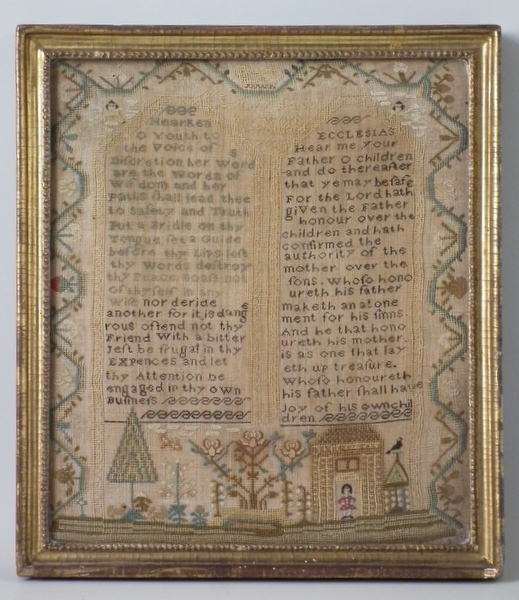 Hearken
O Youth to
the Voice of
Discretion her Words
are the Words of
Wisdom and her
Paths ſhall lead thee
to Safety and Truth
Put a Bridle on thy
Tongue ſet a Guide
before thy Lips leſt
thy Words deſtroy
thy Peace Boaſt not
of thyſelf
nor deride
another for it is dang
rous oftend not thy
Friend With a bitter
Jeſt be frugal in thy
Expences and let
thy Attention be
engaged in thy own
Buſineſs
ECCLESIAS
Hear me your
Father O children
and do thereafter
that ye may be ſafe
For the Lord hath
giVen the Father
honour over the
children and hath
confirmed the
authority of the
mother over the
ſons. Whoſo hono
ureth his father
maketh an atone
ment for his ſinns
And he that hono
ureth his mother
is as one that lay
eth up treaſure.
Whoſo honoureth
his father ſhall have
Joy of his own chil
dren